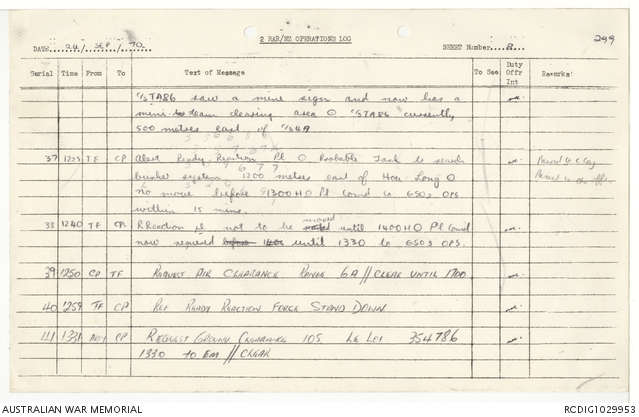 2 RAR/NZ OPERATIONS LOG
299
DATE 24 / SEP / 70 SHEET Number 8
Serial Time From To Text of Message To See Duty Offr Int Remarks
STA86 saw a mine sign and now has a
mini team clearing area O STA86 currently
500 metres east of
37 TF CP Alert Ready Reaction Pl O Probable Task to search
bunker system 1200 meters east of Hoa Long O
no move before 1300H O Pl Comd to GSO3 OPS
within 15 mins.
38 1240 TF CP R Reaction Pl not to be moved until 1400H O Pl Comd
now required until 1330 to GSO3 OPS.
39 1250 CP TF REQUEST AIR CLEARANCE RANGE 6A // CLEAR UNTIL 1700
40 1259 TF CP REF READY REACTION FORCE STAND DOWN
41 1331 CP REQUEST GROUND CLEARANCE 105 LE LOI 354786
1330 TO EM // CLEAR
AUSTRALIAN WAR MEMORIAL RCDIG1029953